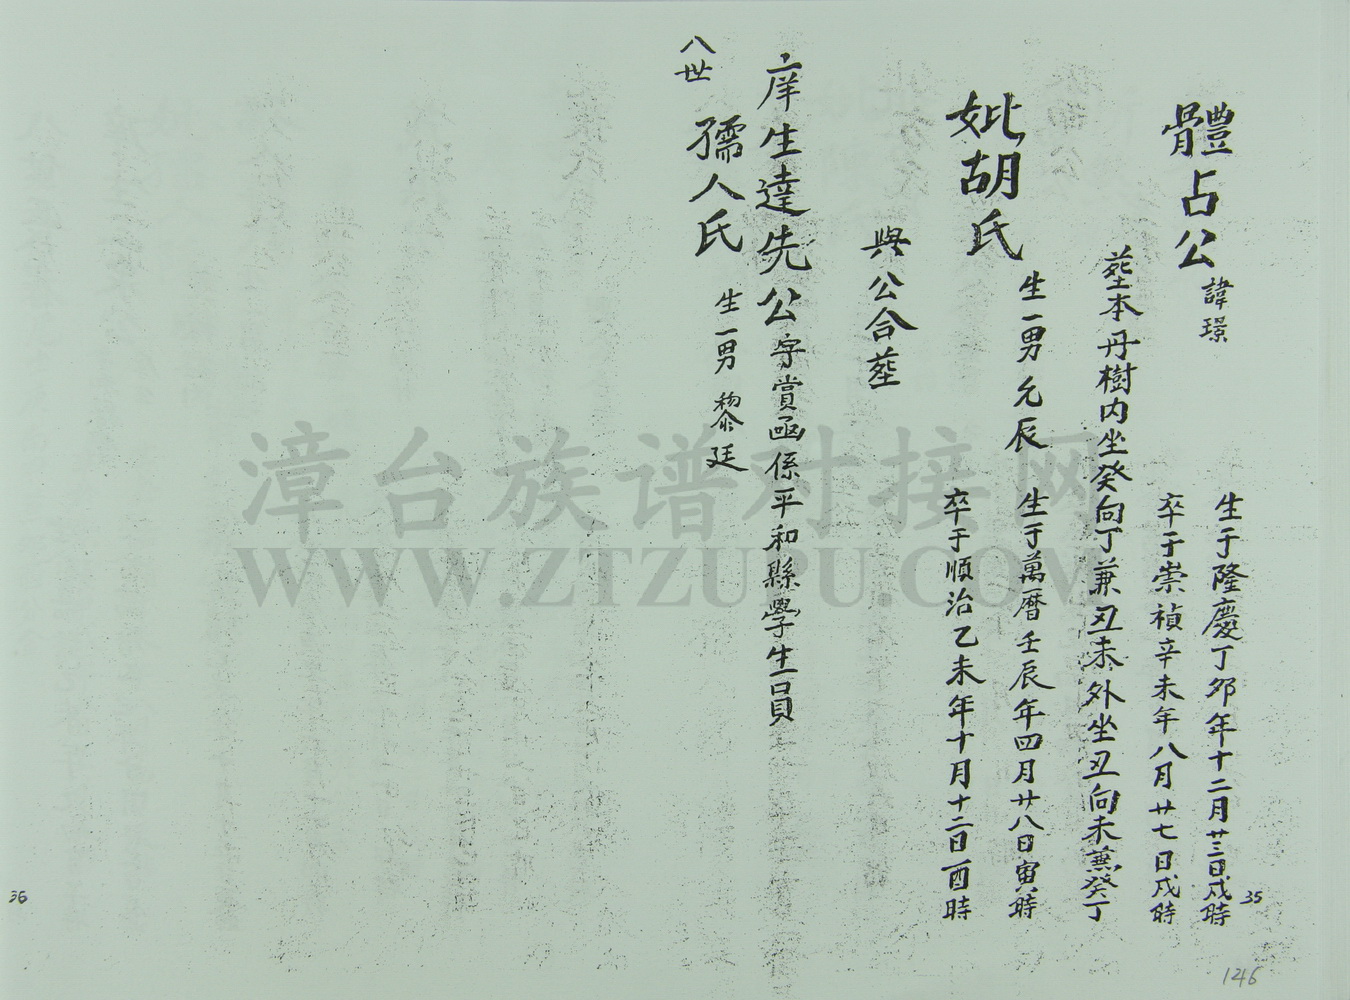 體占公 諱璟
生于隆慶丁卯年十二月廿三日戌時
卒于崇禎辛未年八月廿七日戌時
塟本丹樹内坐癸向丁兼丑未外坐丑向未兼癸丁
妣胡氏
生一男允辰
生于萬曆壬辰年四月廿八日寅時
卒于順治乙未年十月十二日酉時
與公合塟
庠生達先公字賞函係平和縣學生員
八世
孺人氏
生一男黎廷
35
36
146
漳台族谱对接网
WWW.ZTZUPU.COM